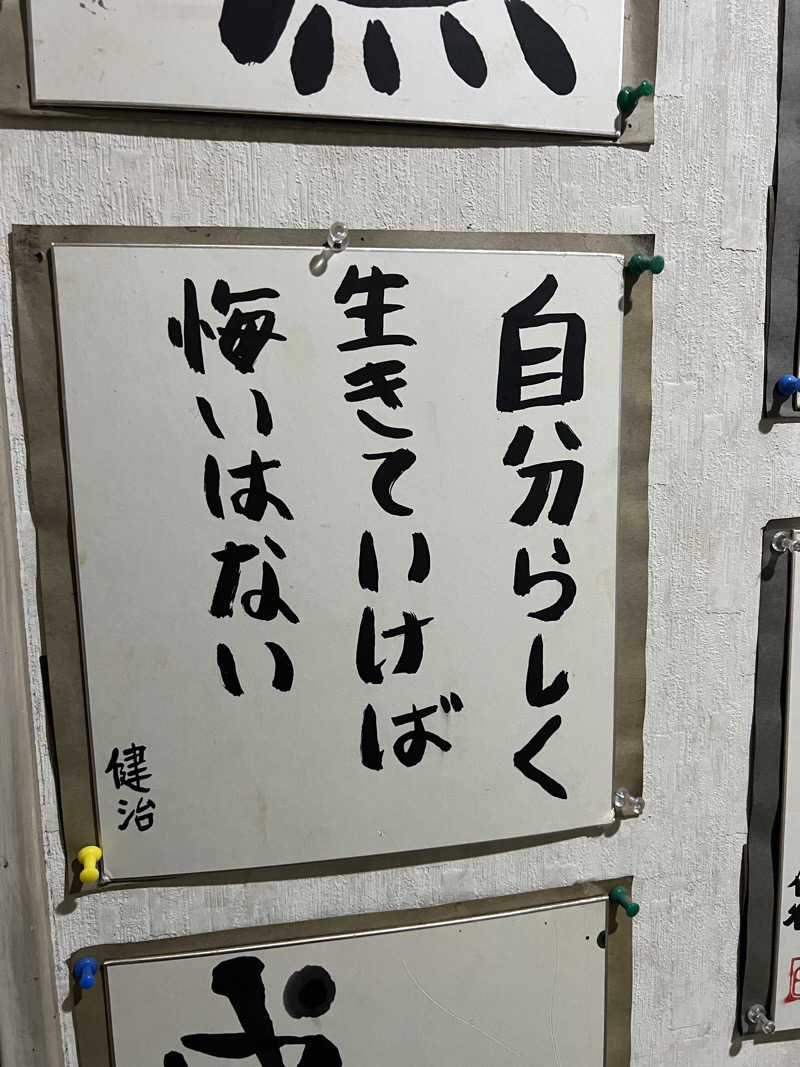 自分らしく
生きていけば
悔いはない
健治